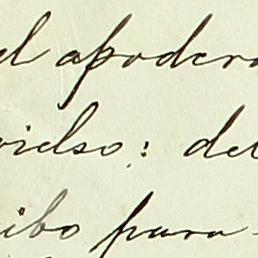 el apodera
vielso: del
ibo para